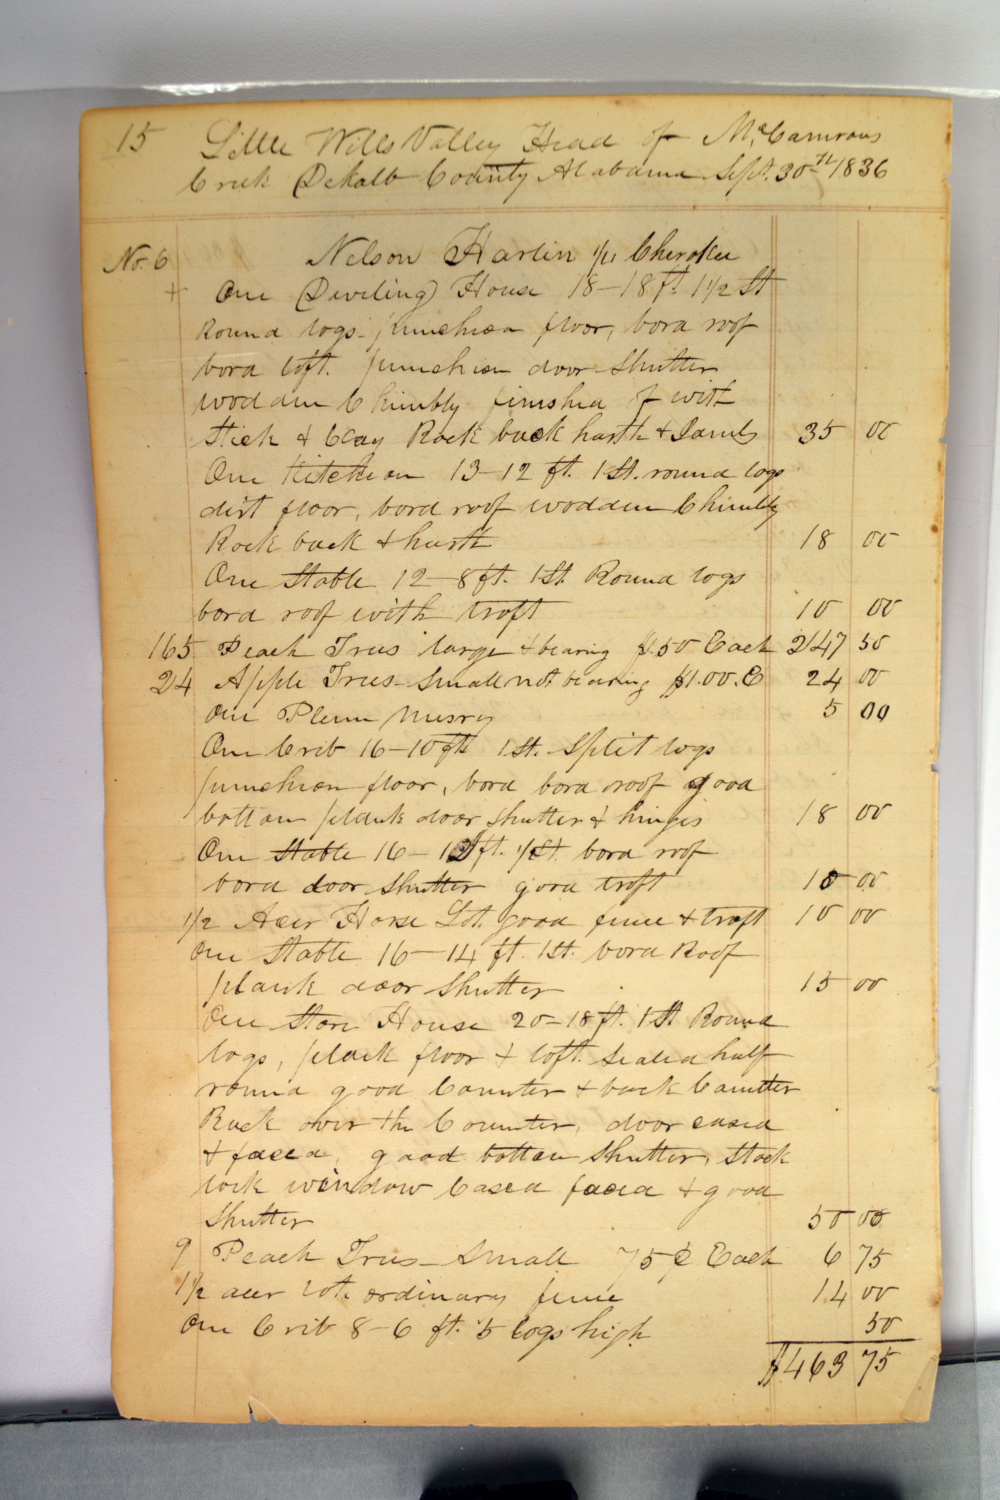 15 Little Wills Valley Head of McCamrons
Creek Dekalb County Alabama Sept. 30th 1836
No. 6 Nelson Harlin 1/4 Cherokee
+ One Dweling House 18-18 ft 1 1/2 St
Round logs puncheon floor, bord roof
bord loft. puncheon door Shutter
wodden Chimbly finished of with
Stick & Clay Rock back harth & Jambs 35 00
One Kitchen 13-12 ft. 1 St. round logs
dirt floor, bord roof wodden Chimbly
Rock back & harth 18 00
One Stable 12-8 ft. 1 St. Round logs
bord roof with troft 10 00
165 Peach Trees large & bearing $1.50 Each 247 50
24 Apple Trees Small not bearing $1.00. E 24 00
One Plum Nusry 5 00
One Crib 16-10 ft 1 St. Split logs
puncheon floor, bord bord roof good
botten plank door Shutter & hinges 18 00
One Stable 16-12 ft. 1 St. bord roof
bord door Shutter good troft 10 00
1/2 Acer Horse Lot good fence & troft 10 00
One Stable 16-14 ft. 1 St. bord Roof
plank door Shutter 15 00
One Store House 20-18 ft. 1 St Round
logs, plank floor & loft. Sealed half
round good Counter & back Countter
Rack over the Counter, door cased
& faced, good botten Shutter, Stock
lock window Cased faced & good
Shutter 50 00
9 Peach Trees Small 75 ¢ Each 6 75
1 1/2 acer lot ordinary fence 14 00
One Crib 8-6 ft. 5 logs high 50
$463 75